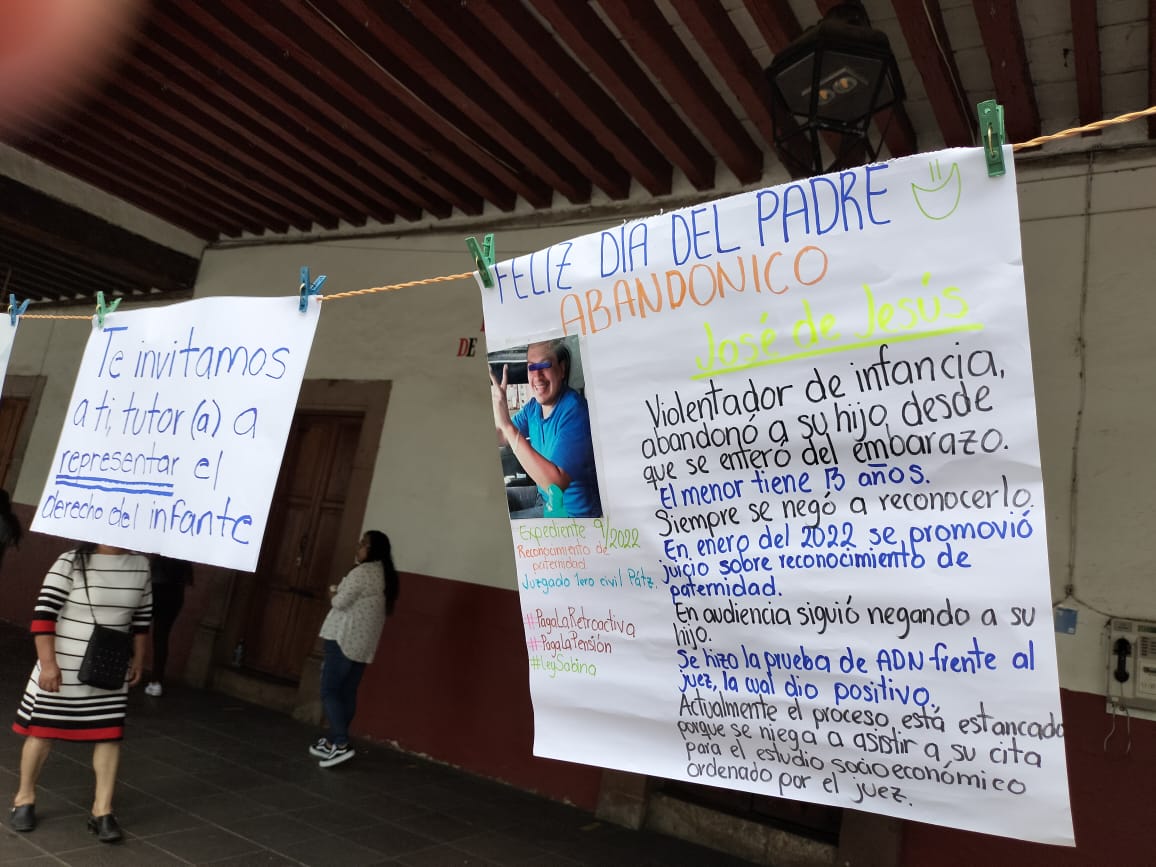 Te invitamos
a ti, tutor(a) a
representar el
derecho del infante
DE
FELIZ DÍA DEL PADRE
ABANDONICO
José de Jesús
Violentador de infancia,
abandonó a su hijo desde
que se enteró del embarazo.
El menor tiene 13 años.
Siempre se negó a reconocerlo.
En enero del 2022 se promovió
juicio sobre reconocimiento de
paternidad.
En audiencia siguió negando a su
hijo.
Se hizo la prueba de ADN frente al
juez, la cual dio positivo.
Actualmente el proceso está estancado
porque se niega a asistir a su cita
para el estudio socioeconómico
ordenado por el juez.
Expediente 9/2022
Reconocimiento de
paternidad
Juzgado 1ero civil Pátz.
#PagaLaRetroactiva
#PagaLaPensión
#LeySabina